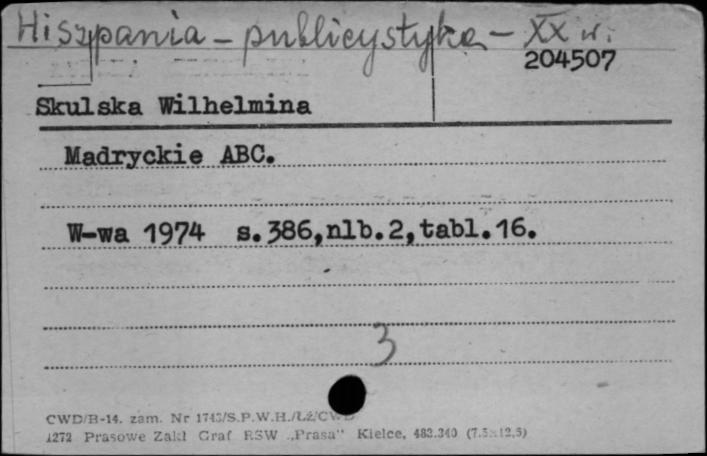 Hiszpania - publicystyka - XX w.
204507
Skulska Wilhelmina
Madryckie ABC.
W-wa 1974 s.386,nlb.2,tabl.16.
3
CWD/B-14. zam. Nr 1743/S.P.W.H./ŁŻ/CWD
1272 Prasowe Zakł Graf RSW „Prasa" Kielce, 483.340 (7.5x12,5)